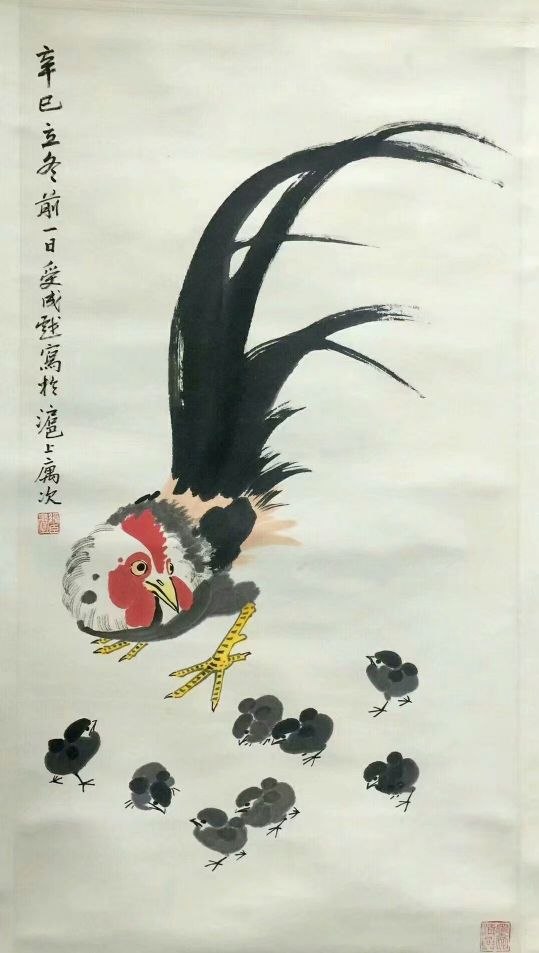 辛巳立冬前一日受成題寫於滬上寓次